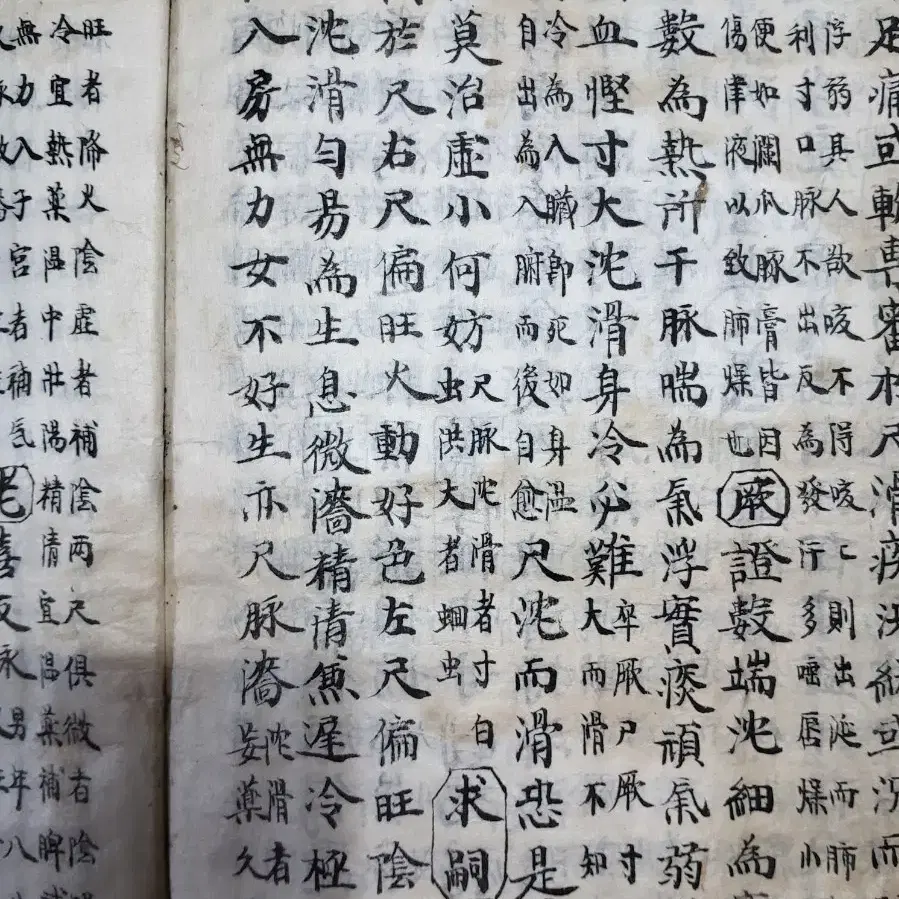 足痛或軟専審尺滑疾沈或而
浮弱具人欲咳不得咳亡則出涎而肺
利寸口脉不出反為發行多唾唇燥小
便如爛瓜豚膏皆因
傷津液以致肺燥也
厥證數端沈細為
數為熱所干脉喘為氣浮實痰頑氣弱
血慳寸大沈滑身冷必難
卒厥尸厥寸
大而滑不知
冷為入臓即死如身温
自出為入腑而後自愈
尺沈而滑恐是
莫治虚小何妨
尺脉沈滑者寸白
虫洪大者蛔虫
求嗣
於尺右尺偏旺火動好色左尺偏旺陰
沈滑匀易為生息微濇精情兼遅冷極
入房無力女不好生亦尺脉濇
沈滑者
妄藥久
旺者降火陰虚者補陰兩尺俱微者陰
冷宜熱藥温中壯陽精清宜温藥補脾
無力入子宮者補气
老喜脉男年八